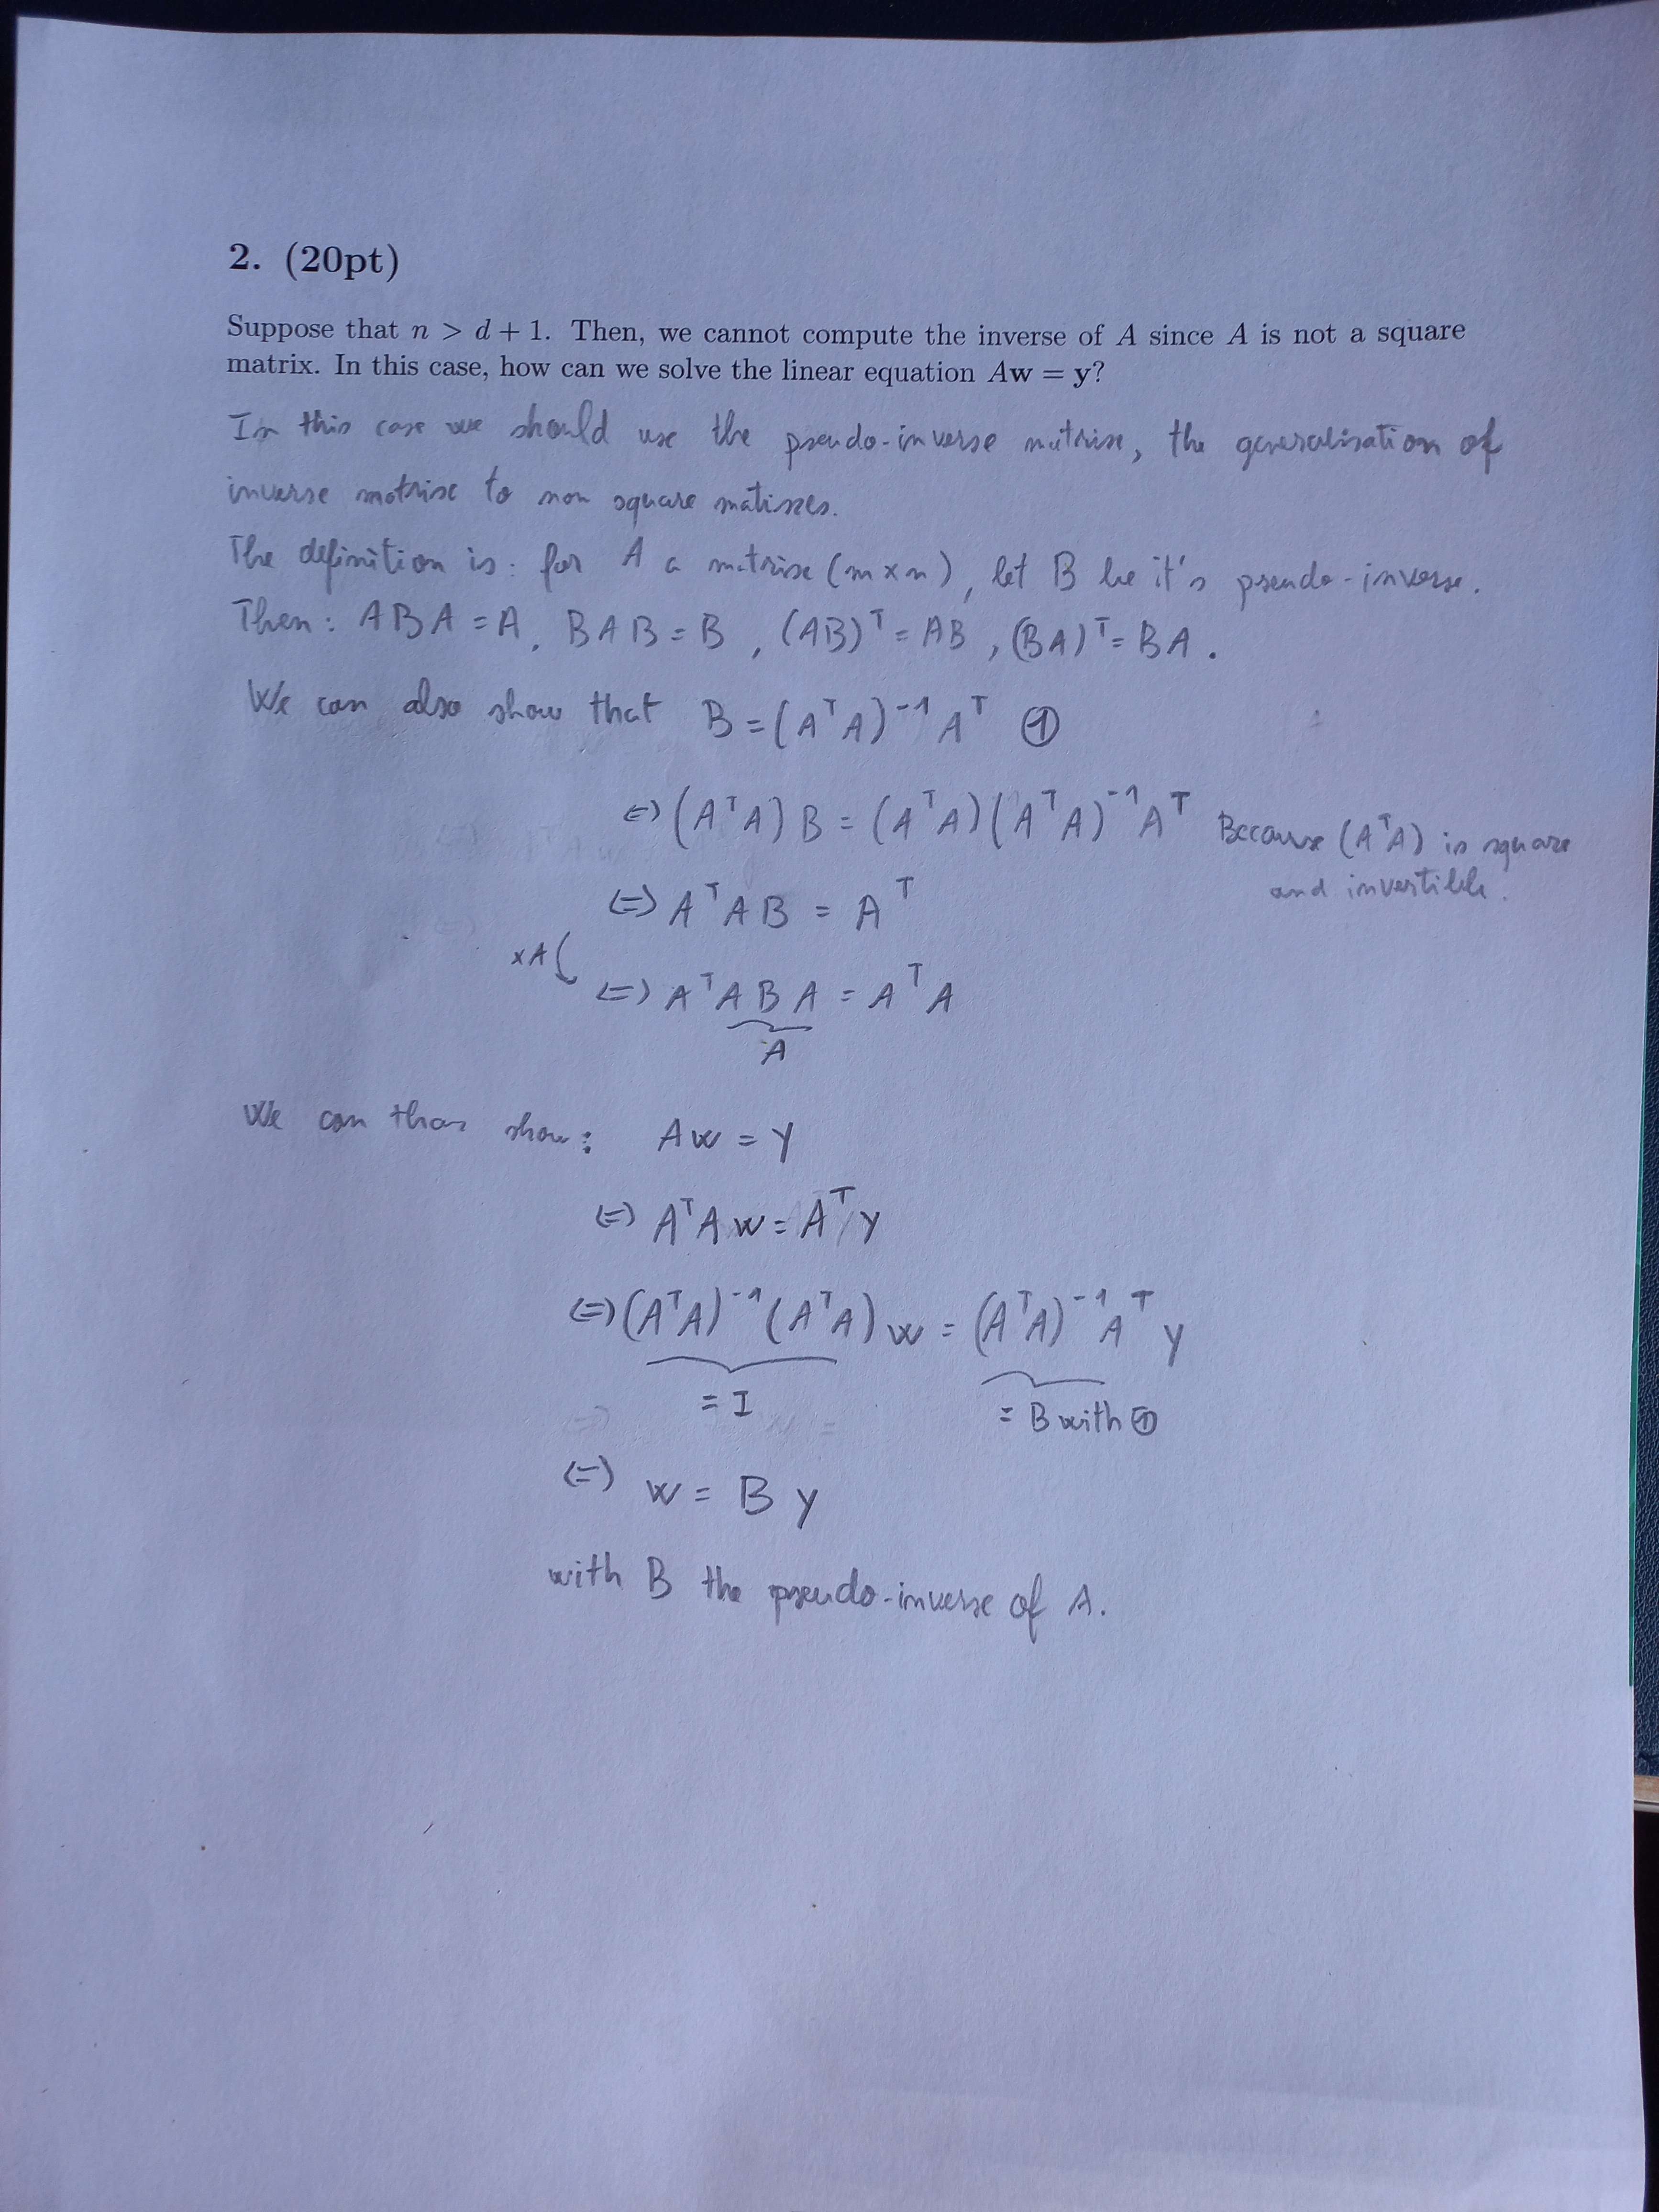 2. (20pt)
Suppose that n > d + 1. Then, we cannot compute the inverse of A since A is not a square
matrix. In this case, how can we solve the linear equation Aw = y?
In this case we should use the pseudo-inverse matrix, the generalisation of
inverse matrix to non square matixes.
The definition is: for A a matrix (m x n), let B be it's pseudo-inverse.
Then: ABA = A, BAB = B, (AB)ᵀ = AB, (BA)ᵀ = BA.
We can also show that B = (AᵀA)⁻¹Aᵀ ①
⇔ (AᵀA)B = (AᵀA)(AᵀA)⁻¹Aᵀ Because (AᵀA) is square
and invertible.
⇔ AᵀAB = Aᵀ
xA
⇔ AᵀABA = AᵀA
A
We can then show: Aw = y
⇔ AᵀAw = Aᵀy
⇔ (AᵀA)⁻¹(AᵀA)w = (AᵀA)⁻¹Aᵀy
= I = B with ①
⇔ w = By
with B the pseudo-inverse of A.